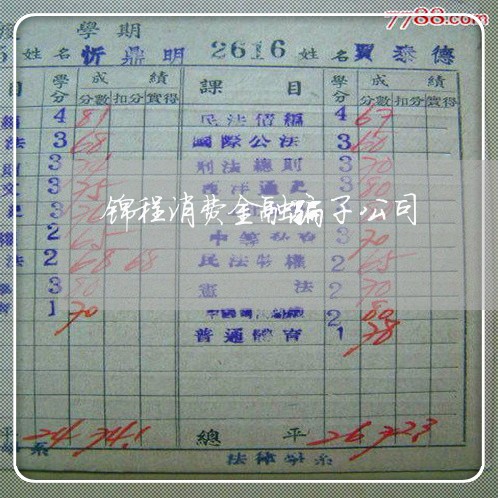 7788.com
學期
姓名 忻鼎明 2616 姓名 賈泰德
目 學分 成績 課目 學分 成績
分數 扣分 實得 分數 扣分 實得
4 81 民法債編 4 67
法 3 68 國際公法 3 60
3 刑法總則 3 70
3 75 西洋通史 3 80
錦程消费金融骗子公司
2 65 3 70
法 2 68 68 民法物權 2 65
3 80 憲法 2 70
1 70 2 80
普通體育 1 78
平 24 74.1 總平 26 72.3
系 法律學系